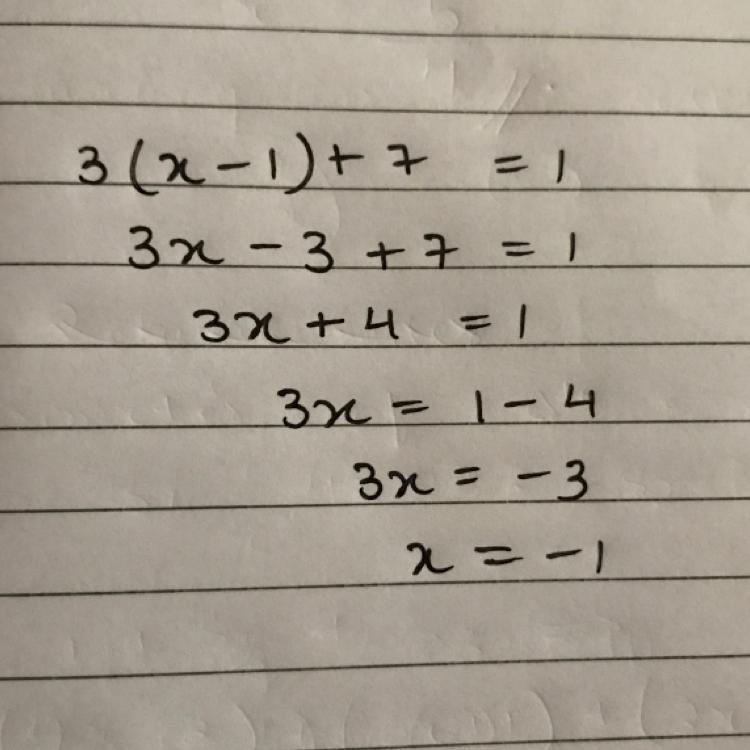 3(x-1)+7 = 1
3x - 3 + 7 = 1
3x + 4 = 1
3x = 1 - 4
3x = -3
x = -1